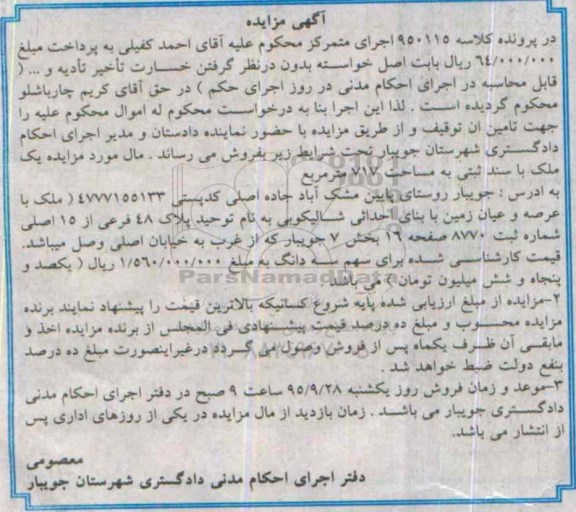 آگهی مزایده
در پرونده کلاسه ۹۵۰۱۱۵ اجرای متمرکز محکوم علیه آقای احمد کفیلی به پرداخت مبلغ
۶۴/۰۰۰/۰۰۰ ریال بابت اصل خواسته بدون درنظر گرفتن خسارت تأخیر تأدیه و ... (
قابل محاسبه در اجرای احکام مدنی در روز اجرای حکم ) در حق آقای کریم چارباشلو
محکوم گردیده است . لذا این اجرا بنا به درخواست محکوم له اموال محکوم علیه را
جهت تامین آن توقیف و از طریق مزایده با حضور نماینده دادستان و مدیر اجرای احکام
دادگستری شهرستان جویبار تحت شرایط زیر بفروش می رساند . مال مورد مزایده یک
ملک با سند ثبتی به مساحت ۷۱۷ مترمربع
به ادرس : جویبار روستای پایین مشک آباد جاده اصلی کدپستی ۴۷۷۷۱۵۵۱۳۳ ( ملک با
عرصه و عیان زمین با بنای احداثی شالیکوبی به نام توحید پلاک ۴۸ فرعی از ۱۵ اصلی
شماره ثبت ۸۷۷۰ صفحه ۱۶ بخش ۷ جویبار که از غرب به خیابان اصلی وصل میباشد.
قیمت کارشناسی شده برای سهم سه دانگ به مبلغ ۱/۵۶۰/۰۰۰/۰۰۰ ریال ( یکصد و
پنجاه و شش میلیون تومان ) می باشد
ParsNamadData
۲-مزایده از مبلغ ارزیابی شده پایه شروع کسانیکه بالاترین قیمت را پیشنهاد نمایند برنده
مزایده محسوب و مبلغ ده درصد قیمت پیشنهادی فی المجلس از برنده مزایده اخذ و
مابقی آن ظرف یکماه پس از فروش وصول می گردد درغیراینصورت مبلغ ده درصد
بنفع دولت ضبط خواهد شد .
۳-موعد و زمان فروش روز یکشنبه ۹۵/۹/۲۸ ساعت ۹ صبح در دفتر اجرای احکام مدنی
دادگستری جویبار می باشد . زمان بازدید از مال مزایده در یکی از روزهای اداری پس
از انتشار می باشد.
معصومی
دفتر اجرای احکام مدنی دادگستری شهرستان جویبار